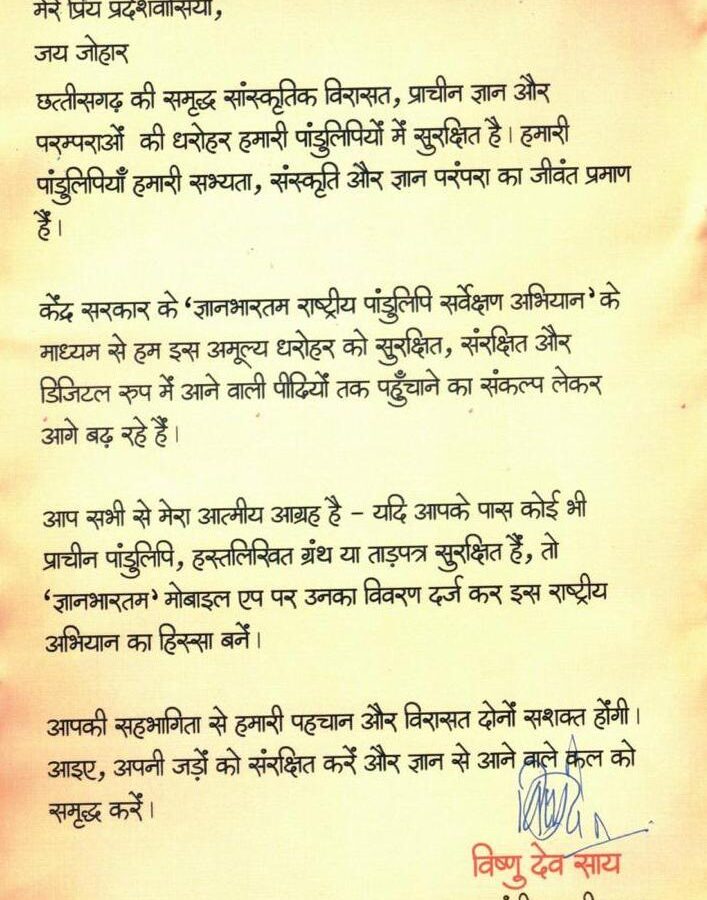 मेरे प्रिय प्रदेशवासियों,
जय जोहार
छत्तीसगढ़ की समृद्ध सांस्कृतिक विरासत, प्राचीन ज्ञान और
परम्पराओं की धरोहर हमारी पांडुलिपियों में सुरक्षित है। हमारी
पांडुलिपियाँ हमारी सभ्यता, संस्कृति और ज्ञान परंपरा का जीवंत प्रमाण
हैं।
केंद्र सरकार के ‘ज्ञानभारतम राष्ट्रीय पांडुलिपि सर्वेक्षण अभियान’ के
माध्यम से हम इस अमूल्य धरोहर को सुरक्षित, संरक्षित और
डिजिटल रुप में आने वाली पीढ़ियों तक पहुँचाने का संकल्प लेकर
आगे बढ़ रहे हैं।
आप सभी से मेरा आत्मीय आग्रह है – यदि आपके पास कोई भी
प्राचीन पांडुलिपि, हस्तलिखित ग्रंथ या ताड़पत्र सुरक्षित हैं, तो
‘ज्ञानभारतम’ मोबाइल एप पर उनका विवरण दर्ज कर इस राष्ट्रीय
अभियान का हिस्सा बनें।
आपकी सहभागिता से हमारी पहचान और विरासत दोनों सशक्त होंगी।
आइए, अपनी जड़ों को संरक्षित करें और ज्ञान से आने वाले कल को
समृद्ध करें।
विष्णु देव साय